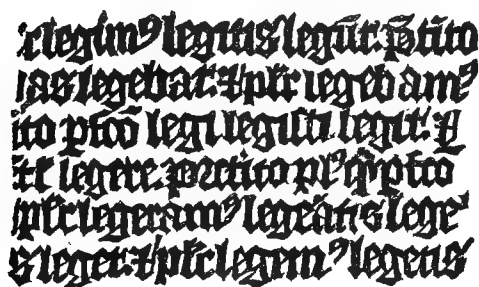 r legim⁹ legitis legūt. P̄tito
as legebat. ⁊ pl̄r legebam⁹
ito pfcō legi legisti legit. ⁊
t legere. p̄tito pl⁹q̄pfcto
pl̄r legeram⁹ legeātis lege
s leget. ⁊ pl̄r legem⁹ legetis